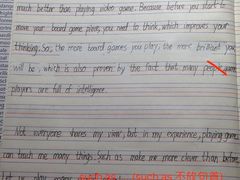 much better than playing video game. Because before you start to
move your board game pieces, you need to think, which improves your
thinking. So, the more board games you play, the more brilliant you
will be, which is also proven by the fact that many people game
players are full of intelligence.
Not everyone shares my view, but in my experience, playing game
can teach me many things. Such as make me more clever than before
such as